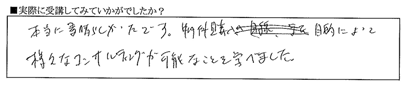 ■実際に受講してみていかがでしたか?
本当に素晴らしかったです。物件毎への目的によって
様々なコンサルティングが可能なことを学べました